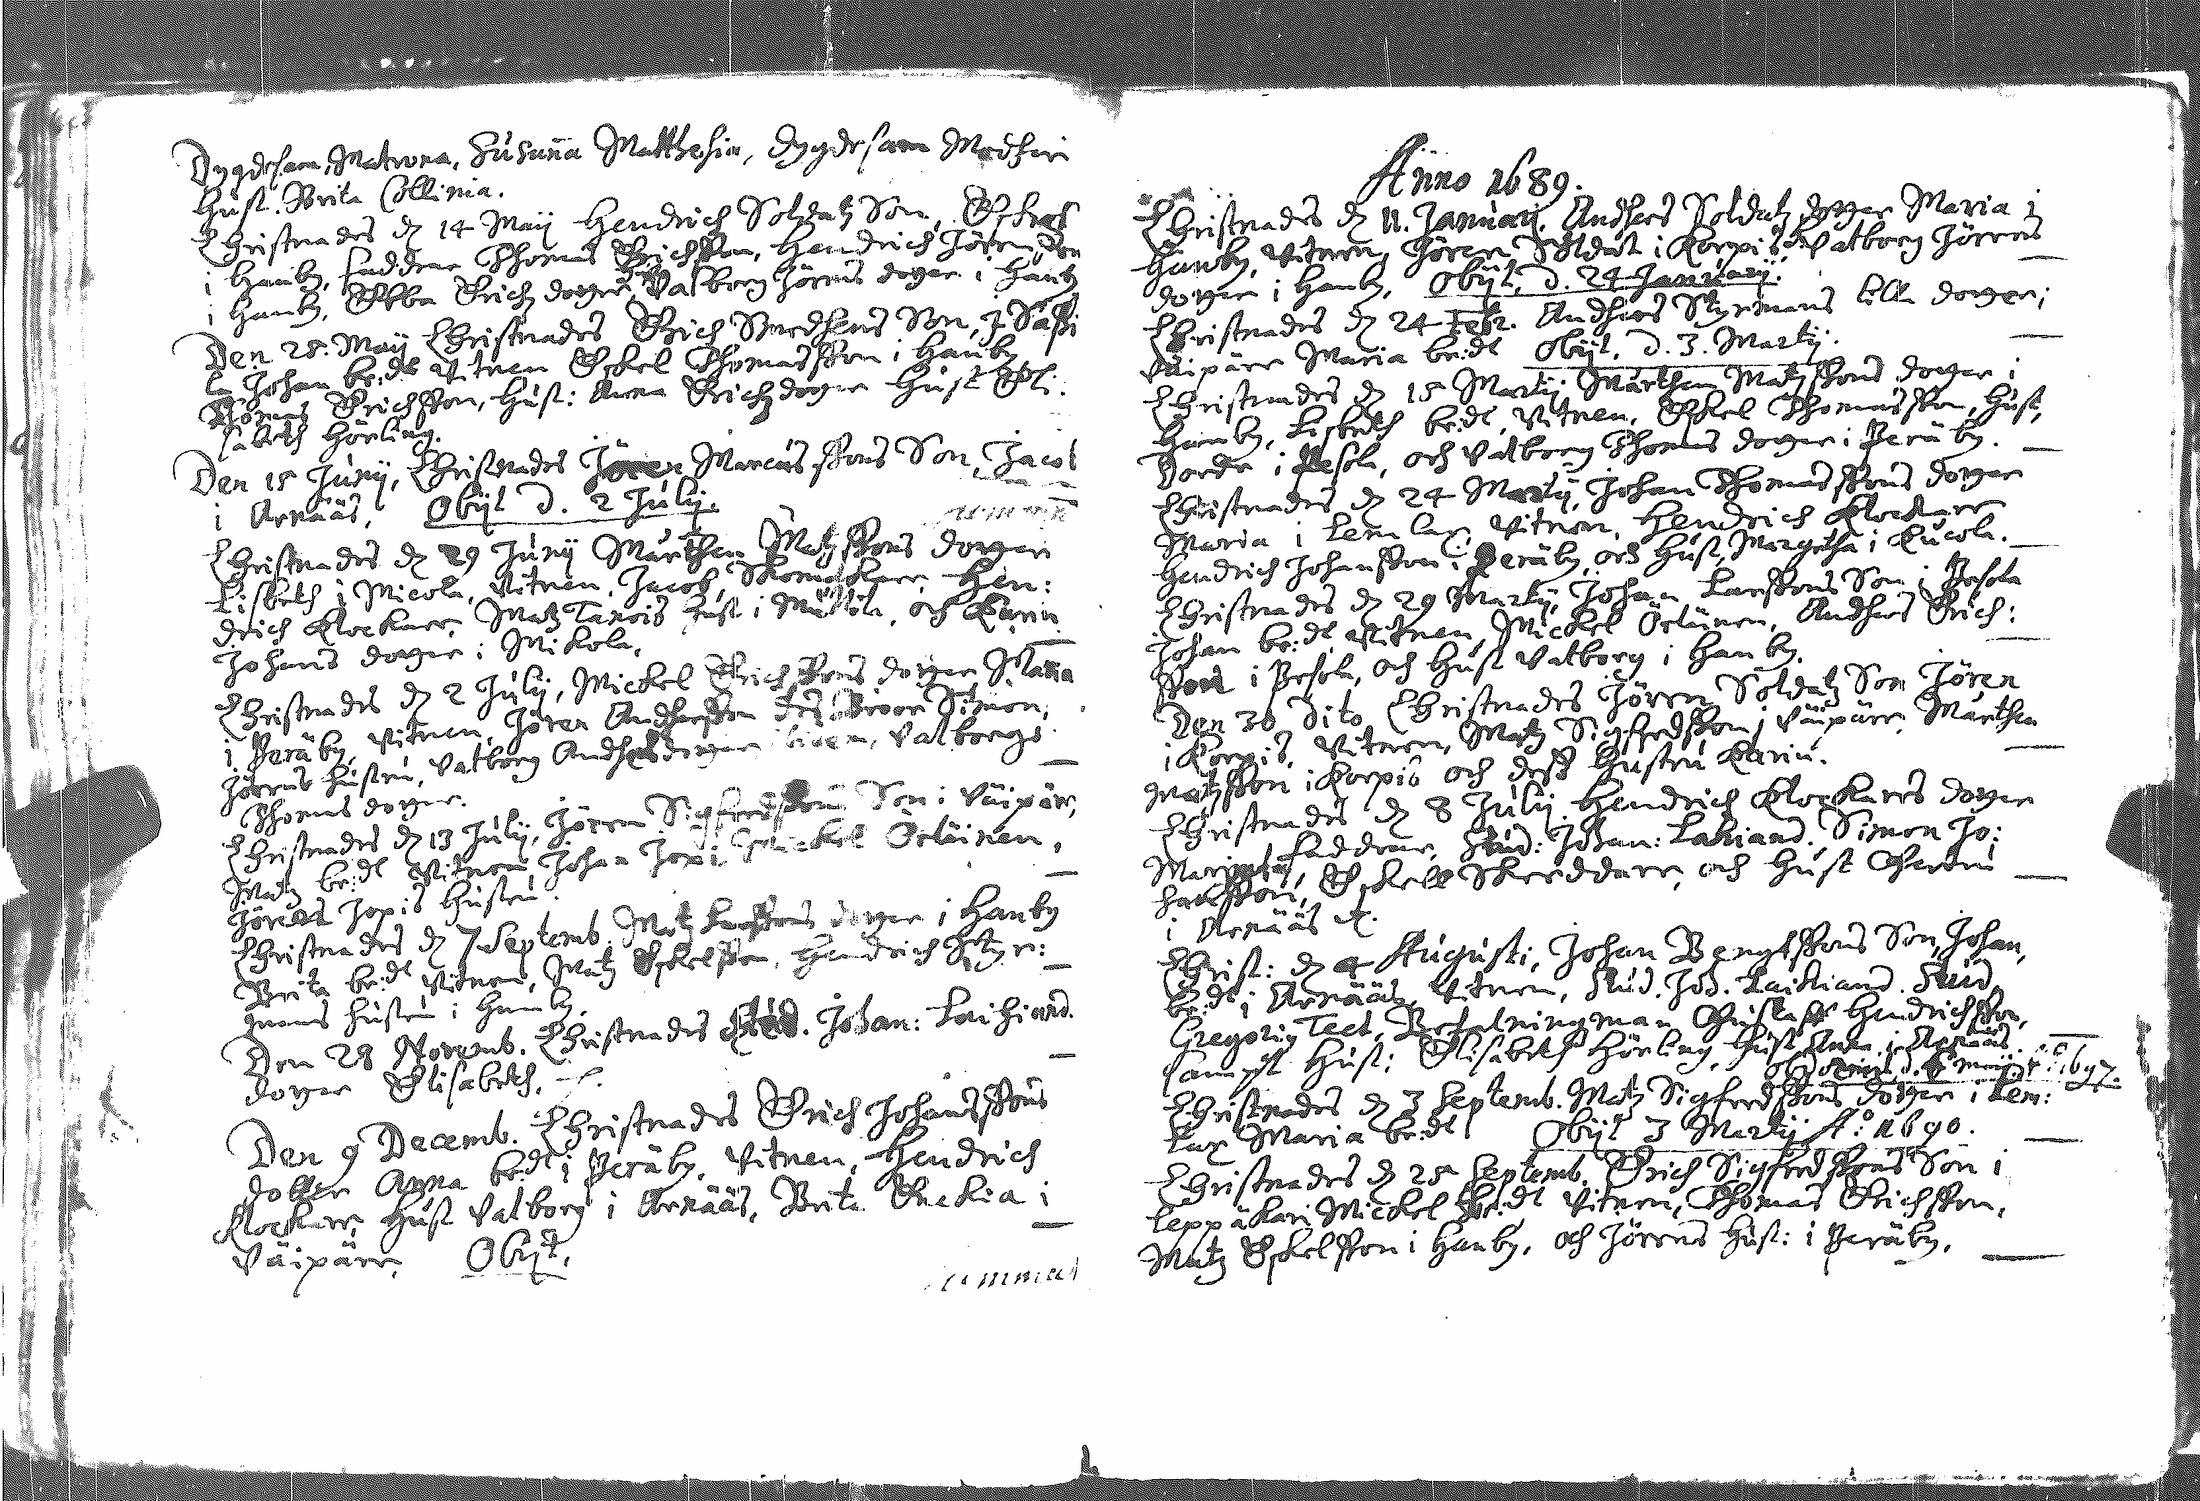 Dygdesam Matrona, Susanna Matthesia, dygdesam Modhren
hust. Brita Collinia.
Christnades d 14 Maij Hendrich Soldatz Son, Eskel
i Hanby, Faddrar Thomas Erichsson, Hendrich Jören Son
i Hanby, Ebba Erichz doter, Valborg Jörens doter i Hanby
Den 28. Maij Christnades Erich Smedhens Son, i Saßi
la Johan be:dt Vitnen Eskel Thomasson i Hanby
Thomas Erichsson, Hust: Anna Erichzdoter Hust Eli:
sabeth Hörling.
Den 15 Junij, Christnades Jören Marcussons Son, Jacob
i Arnääs, Obijt d. 2 Julij.
Christnades d 29 Junij Mårthen Matzssons doter
Lisbeth i Micola, Vitnen, Jacob Skomakare, Hen:
drich Klockare, Matz hust i och Karin
Johans doter i Mikola,
Christnades d 2 Julij, Mickel Erichssons doter Maria
i Peräby, Vitnen, Jören Andhersson des Broor Simon,
Jörens hustru, Valborg Andhersdoter Valborgs
Thomas doter.
Christnades d 13 Julij, Jören Sigfredssons Son i Väipäre,
Matz be:dt Vitnen, Johan Jopi, Mickel Örtäinen,
Jörens Jopis hustru.
Christnades d 7 Septemb. Matz Larssons doter i Hanby
Brita be:dt Vitnen, Matz Eskelsson, Hendrich Styr:
mans hustru i Hanby.
Den 28 Novemb. Christnades Stud. Johan: Laihiand.
doter Elisabeth.
Den 9 Decemb. Christnades Erich Johanssons
dotter Anna be:dt i Peräby, Vitnen, Hendrich
Klockare, Hust Valborg i Arnääs, Brita i
Väipäre, Obijt.
Anno 1689.
Christnades d 11. Januarij, Andhers Soldatz doter Maria i
Hanby, Vitnen, Jören Soldat i Korpis, Valborg Jörens
doter i Hanby, Obijt, d. 24 Januarij.
Christnades d 24 Febr. Andhers Styrmans lilla doter i
Väipäre Maria be:dt Obijt, d. 3. Martij.
Christnades d 15 Martij Mårthen Matzssons doter i
Hanby, Lisbeth be:dt, Vitnen, Eskel Thomasson, Hust,
Dordi i Pesola, och Valborg Thomas doter i Peräby.
Christnades d 24 Martij, Johan Thomassons doter
Maria i Lemlax, Vitnen, Hendrich Klockare
Hendrich Johansson i Peräby, och Hust, Margetha i Kucola.
Christnades d 29 Martij, Johan Larssons Son i Pesola
Johan be:dt Vitnen, Mickel Örtäinen, Andhers Erich:
sson i Pesola, och Hust Valborg i Hanby.
Den 30 Dito Christnades Jören Soldatz Son Jören
i Korpis, Vitnen, Matz Sigfredsson i Väipäre, Mårthen
Matzsson i Korpis och dess hustru Karin.
Christnades d 8 Julij Hendrich Klockares doter
Margeta, Faddrar, Stud: Johan: Lahiand. Simon Jo:
hansson, Eskell Skreddare, och Hust
i Arnääs &.
Christ: d 4 Augusti, Johan Bengtssons Son, Johan,
be:dt i Arnääs, Vitnen, Stud. Joh. Laihiand. Stud.
Gregorij Teet, Befalningman Gustaff Hendrichsson,
sampt Hust: Elisabeth Hörling, hust Anna i Arnääs.
Obijt d. 6 Maij A:o 1697.
Christnades d 3 Septemb. Matz Sigfredssons doter i Lem:
lax Maria be:dt Obijt 3 Martij A:o 1690.
Christnades d 25 Septemb. Erich Sigfredssons Son i
Leppäkari Mickel be:dt Vitnen, Thomas Erichsson,
Matz Eskelsson i Hanby, och Jörens Hust: i Peräby.